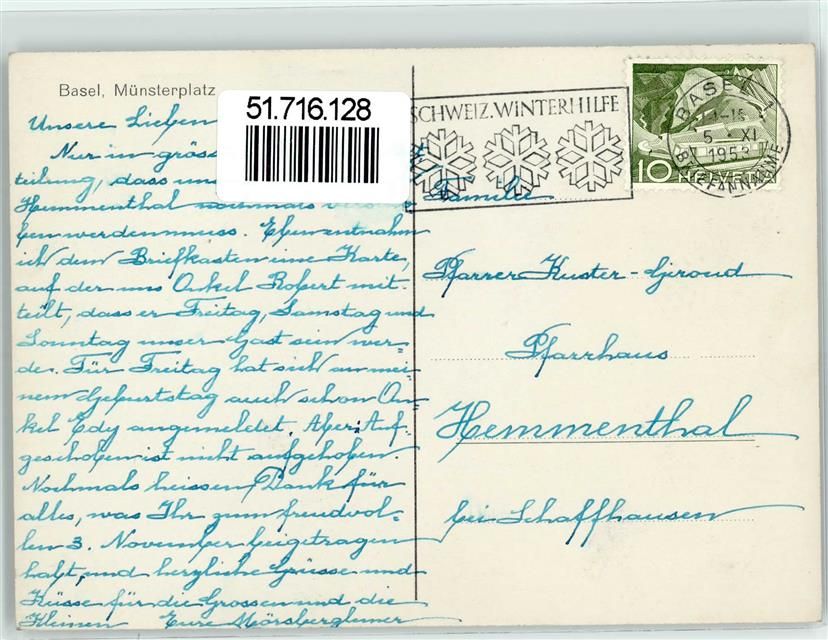 Basel, Münsterplatz
51.716.128
SCHWEIZ. WINTERHILFE
BASEL 1
5. XI
1953
BRIEFANNAHME
10 HELVETIA
Unsere Lieben
Nur in gröss
teilung, dass un
Hemmenthal nochmals verscho
ben werden muss. Eben entnahm
ich dem Briefkasten eine Karte,
auf der uns Onkel Robert mit-
teilt, dass er Freitag, Samstag und
Sonntag unser Gast sein wer-
de. Für Freitag hat sich an mei-
nem Geburtstag auch schon On-
kel Edy angemeldet. Aber: Auf-
geschoben ist nicht aufgehoben.
Nochmals heissen Dank für
alles, was Ihr zum freudvol-
len 3. November beigetragen
habt, und herzliche Grüsse und
Küsse für die Grossen und die
Kleinen Eure Mörsbergleiner
Familie
Pfarrer Kuster-Giroud
Pfarrhaus
Hemmenthal
bei Schaffhausen